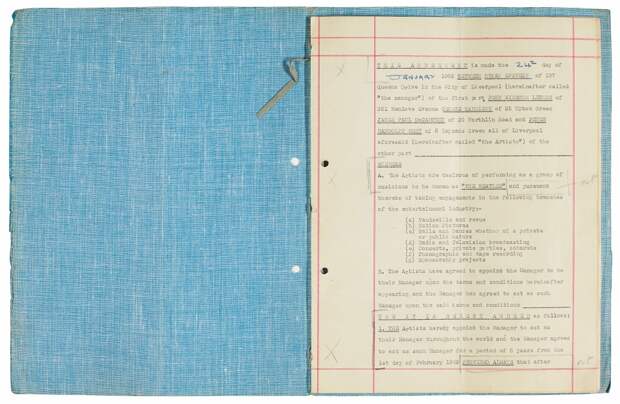 THIS AGREEMENT is made the 24th day of
JANUARY 1962 BETWEEN BRIAN EPSTEIN of 197
Queens Drive in the City of Liverpool (hereinafter called
"the Manager") of the first part JOHN WINSTON LENNON of
251 Menlove Avenue GEORGE HARRISON of 25 Upton Green
JAMES PAUL McCARTNEY of 20 Forthlin Road and PETER
RANDOLPH BEST of 8 Haymans Green all of Liverpool
aforesaid (hereinafter called "the Artists") of the
other part
WHEREAS
A. The Artists are desirous of performing as a group of
musicians to be known as "THE BEATLES" and pursuant
thereto of taking engagements in the following branches
of the entertainment industry:-
(a) Vaudeville and revue
(b) Motion Pictures
(c) Balls and Dances whether of a private
or public nature
(d) Radio and Television broadcasting
(e) Concerts, private parties, cabarets
(f) Phonographic and tape recording
(g) Sponsorship projects
B. The Artists have agreed to appoint the Manager to be
their Manager upon the terms and conditions hereinafter
appearing and the Manager has agreed to act as such
Manager upon the said terms and conditions
NOW IT IS HEREBY AGREED as follows:
1. THE Artists hereby appoint the Manager to act as
their Manager throughout the world and the Manager agrees
to act as such Manager for a period of 5 years from the
1st day of February 1962 PROVIDED ALWAYS that after